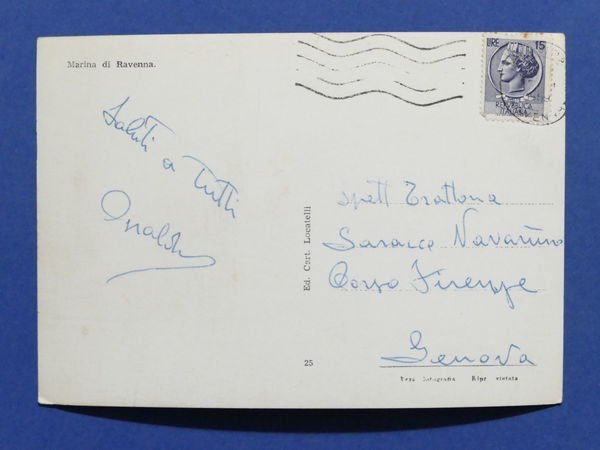 Marina di Ravenna.
LIRE 15
REPVBBLICA
ITALIANA
Saluti a Tutti
Osvaldo
Spett Trattoria
Saracco Navarrino
Corso Firenze
Genova
Ed. Cart. Locatelli
25
Vera fotografia Ripr. vietata